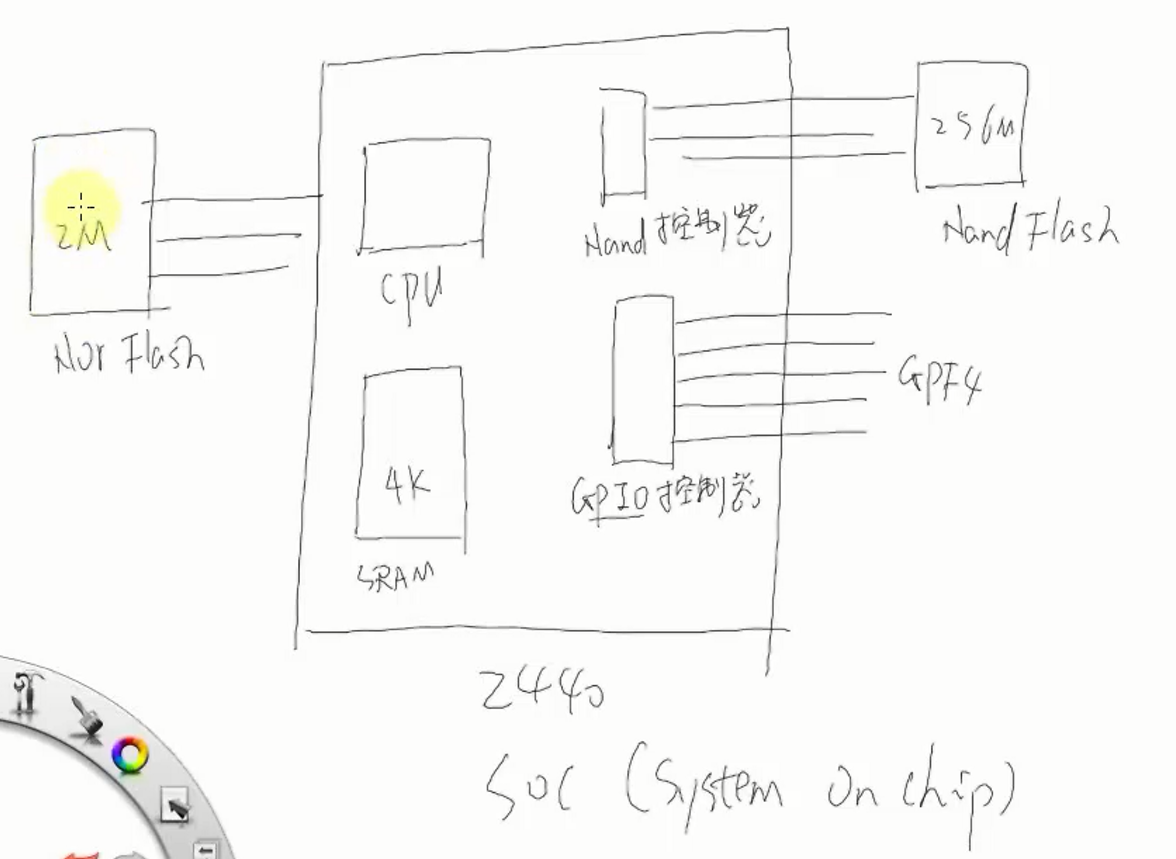 2M
Nor Flash
CPU
4K
SRAM
Nand 控制器
256M
Nand Flash
GPIO 控制器
GPF4
2440
SOC (System on chip)